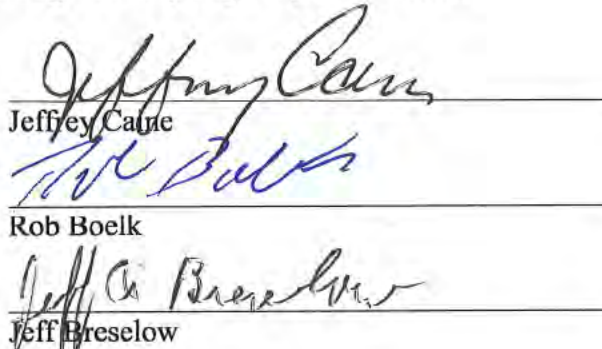 Jeffrey Caine
Jeffrey Caine
Rob Boelk
Rob Boelk
Jeff A Breselow
Jeff Breselow